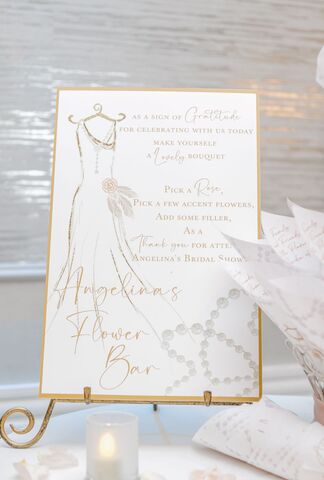 AS A SIGN OF Gratitude
FOR CELEBRATING WITH US TODAY
MAKE YOURSELF
A Lovely BOUQUET
PICK A Rose,
PICK A FEW ACCENT FLOWERS,
ADD SOME FILLER,
AS A
Thank you FOR
ANGELINA'S BRIDAL
Angelina's
Flower
Bar